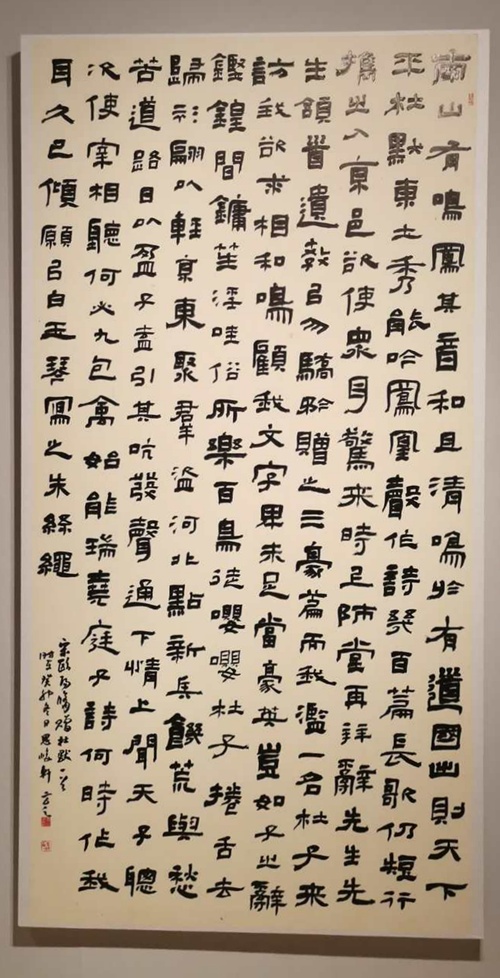 南山有鳴鳳其音和且清鳴於有道國出則天下
平杜默東土秀能吟鳳凰聲作詩幾百篇長歌仍短行
攜之入京邑欲使衆耳驚來時上師堂再拜辭先生先
生頷首遺教以勿驕矜贈之三豪篇而我濫一名杜子來
訪我欲求相和鳴顧我文字卑未足當豪英豈如子之辭
鏗鍠間鏞笙淫哇俗所樂百鳥徒嚶嚶杜子捲舌去
歸衫翩以輕京東聚羣盜河北點新兵饑荒與愁
苦道路日以盈子盍引其吭發聲通下情上聞天子聰
次使宰相聽何必九包禽始能瑞堯庭子詩何時作我
耳久已傾願以白玉琴寫之朱絲繩
宋歐陽脩贈杜默一首
時在癸卯冬日